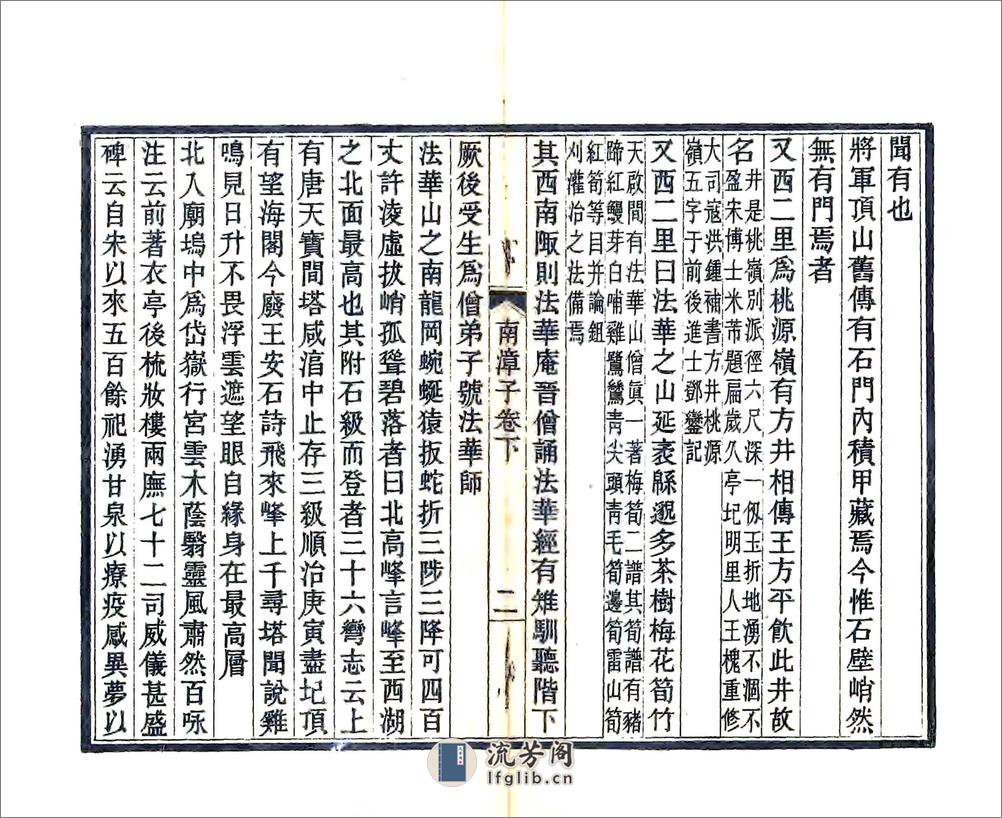 聞有也
將軍頂山舊傳有石門內積甲藏焉今惟石壁峭然
無有門焉者
又西二里爲桃源嶺有方井相傳王方平飮此井故
名井是桃嶺別派徑六尺深一仭玉折地湧不涸不
盈宋博士米芾題扁歲久亭圮明里人王槐重修
大司寇洪鍾補書方井桃源
嶺五字于前後進士鄧鑾記
又西二里曰法華之山延袤緜邈多茶樹梅花筍竹
天啟間有法華山僧眞一著梅筍二譜其筍譜有豬
蹄紅鰻芽白哺雞鷺鷥靑尖頭靑毛筍邊筍雷山筍
紅筍等目并論鉏
刈灌冶之法備焉
其西南陬則法華庵晉僧誦法華經有雉馴聽階下
南漳子卷下
二
厥後受生爲僧弟子號法華師
法華山之南龍岡蜿蜒猿扳蛇折三陟三降可四百
丈許淩虛拔峭孤聳碧落者曰北高峰言峰至西湖
之北面最高也其附石級而登者三十六彎志云上
有唐天寶間塔咸湻中止存三級順治庚寅盡圮頂
有望海閣今廢王安石詩飛來峰上千尋塔聞說雞
鳴見日升不畏浮雲遮望眼自緣身在最高層
北入廟塢中爲岱嶽行宮雲木蔭翳靈風肅然百咏
注云前著衣亭後梳妝樓兩廡七十二司威儀甚盛
碑云自宋以來五百餘祀湧甘泉以療疫感異夢以
流芳阁
lfglib.cn